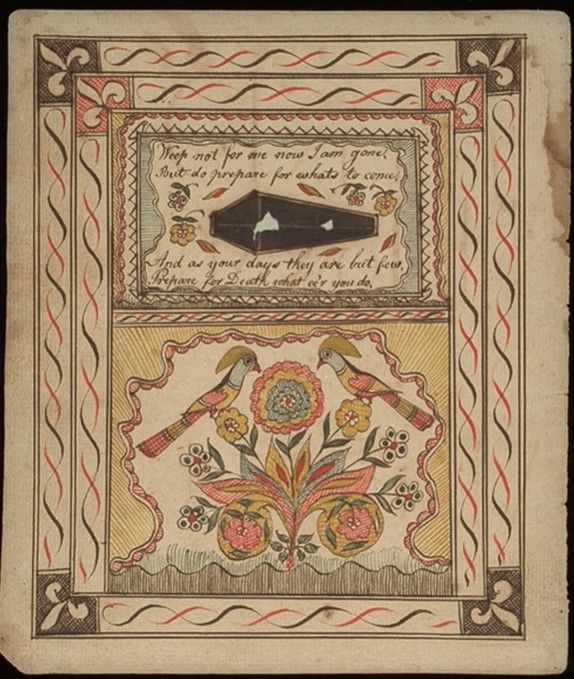 Weep not for me now I am gone,
But do prepare for whats to come,
And as your days they are but few,
Prepare for Death what ee'r you do.